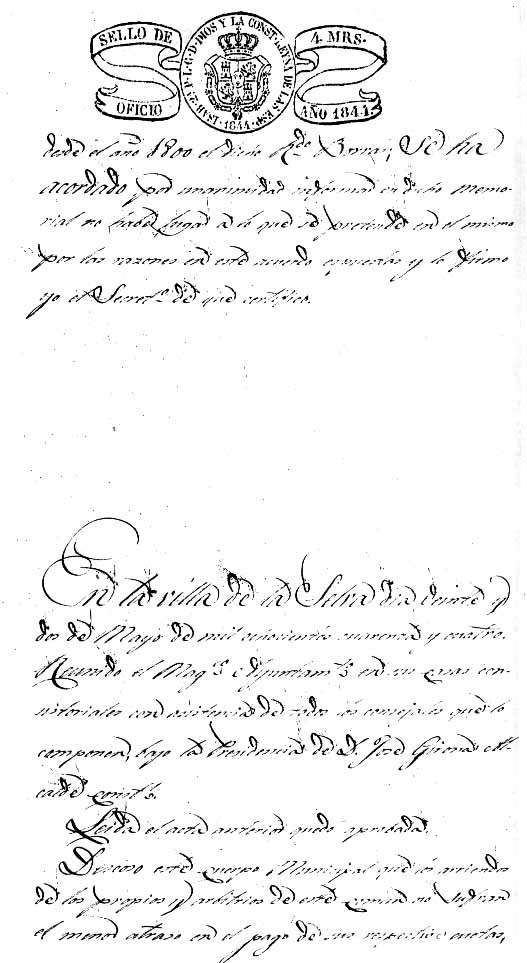 SELLO DE
OFICIO
ISAB. 2ª P. L. G. D. DIOS Y LA CONST. REYNA DE LAS ESP.
1844.
4. MRS.
AÑO 1844.
desde el año 1800 el dicho Rdo Se ha
acordado por unanimidad informar en dicho memo-
rial no haber lugar a lo que se pretende en el mismo
por las razones en este acuerdo expuestas y lo firmo
yo el Secretº de que certifico.
En la villa de la Selva dia veinte y
dos de Mayo de mil ochocientos cuarenta y cuatro.
Reunido el Magº Ayuntamtº en sus casas con-
sistoriales con asistencia de todos los consejales que lo
componen, bajo la Presidencia de D. José Girona Al-
calde constl.
Leida el acta anterior quedó aprobada.
Deseoso este cuerpo Municipal que los arriendos
de los propios y arbitrios de este comun no sufran
el menor atraso en el pago de sus respectivas cuotas,